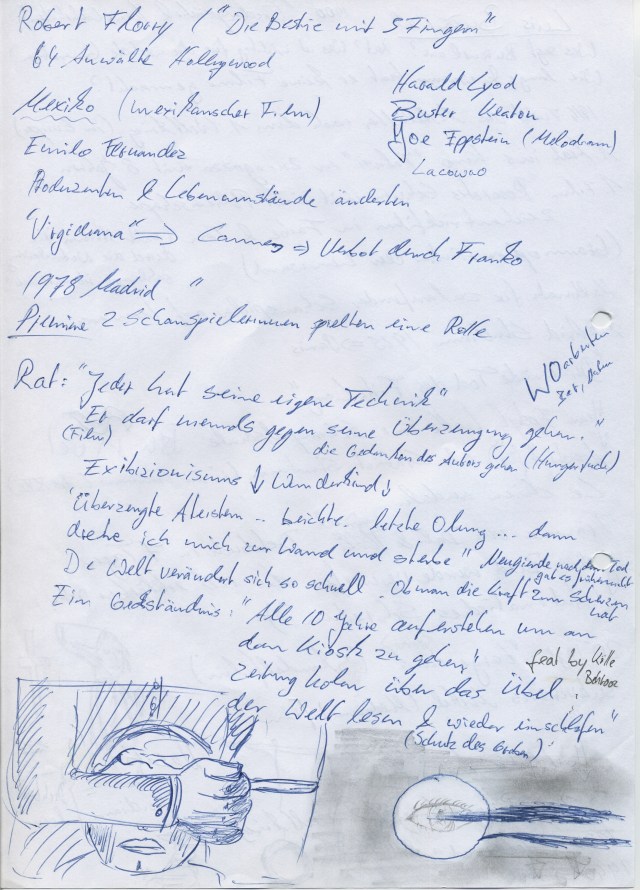 Robert Floury / "Die Bestie mit 5 Fingern"
64, Anwälte Hollywood
Harald Lyod
Mexiko (mexikanischer Film)
Buster Keaton
Joe Eppstein (Melodram)
Emilio Fernandez
Lacowao
Produzenten & Lebenumstände änderten
"Virgidiana" => Cannes => Verbot durch Franko
1978 Madrid "
Premiere 2 Schauspielerinnen spielten eine Rolle
WO arbeiten
Rat: "Jeder hat seine eigene Technik"
Er darf niemals gegen seine Überzeugung gehen."
(Film)
die Gedanken des Autors gehen (Hungertuch)
Exibizionismus ↓ Wunderkind ↓
"Überzeugte Ateisten .. beichte. letzte Ölung ... dann
drehe ich mich zur Wand und sterbe" Neugierde nach dem Tod
gab es früher nicht
De Welt verändert sich so schnell. Ob man die Kraft zum Scherzen
hat
Ein Geständnis: "Alle 10 Jahre auferstehen um an
dem Kiosk zu gehen,"
feat by Kille
Zeitung holen über das Übel
der Welt lesen & wieder einschlafen"
(Schutz des Grabes)